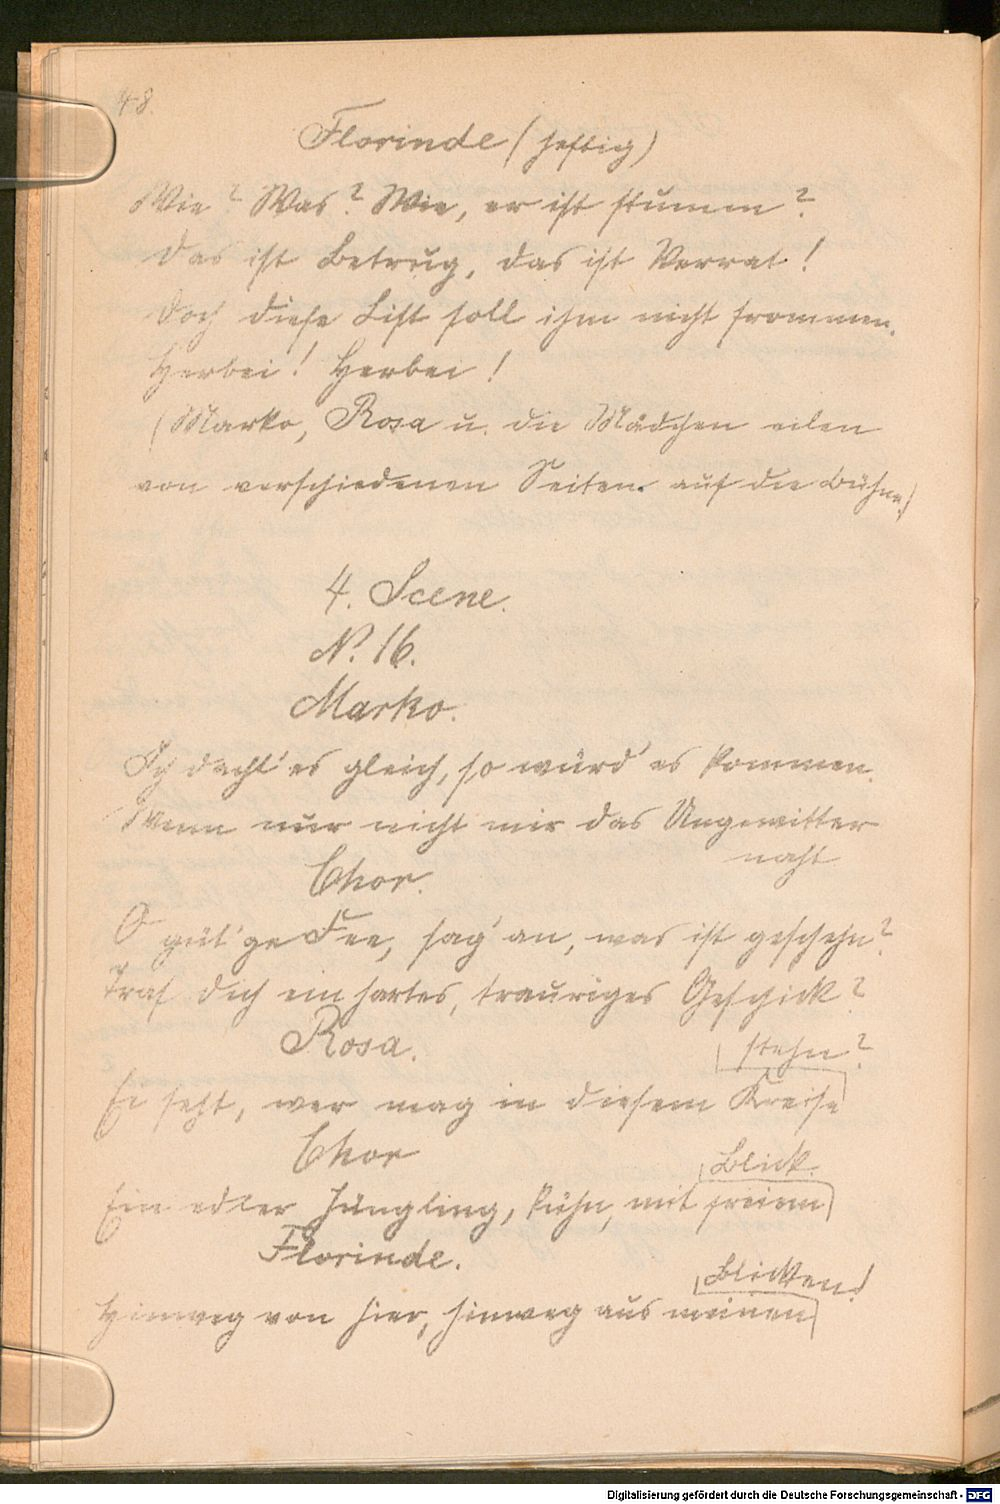 48.
Florinde (heftig)
Wie? Was? Wie, er ist stumm?
Das ist Betrug, das ist Verrat!
Doch diese List soll ihm nicht frommen.
Herbei! Herbei!
(Marko, Rosa u. die Mädchen eilen
von verschiedenen Seiten auf die Bühne)
4. Scene.
No. 16.
Marko.
Ich dacht' es gleich, so würd' es kommen.
Wenn nur nicht mir das Ungewitter
naht
Chor.
O güt'ge Fee, sag' an, was ist geschehn?
Traf dich ein hartes, trauriges Geschick?
Rosa.
stehn?
Ei seht, wer mag in diesem Kreise
Chor
Blick.
Ein edler Jüngling, kühn, mit freiem
Florinde.
Blicken!
Hinweg von hier, hinweg aus meinen
Digitalisierung gefördert durch die Deutsche Forschungsgemeinschaft - DFG